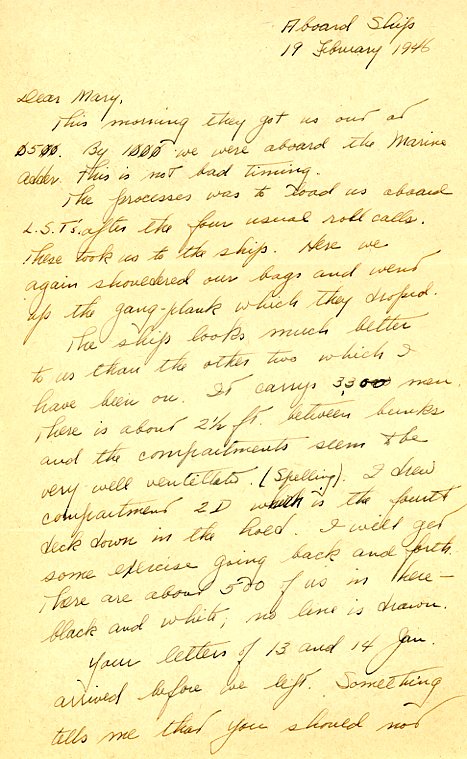 Aboard Ship
19 February 1946
Dear Mary,
This morning they got us out at
0500. By 1000 we were aboard the Marine
Adder. This is not bad timing.
The processes was to load us aboard
L.S.T's. after the four usual roll calls.
These took us to the ship. Here we
again shouldered our bags and went
up the gang-plank which they droped.
The ship looks much better
to us than the other two which I
have been on. It carrys 3300 men.
There is about 2½ ft. between bunks
and the compartments seem to be
very well ventillated. (Spelling). I drew
compartment 2D which is the fourth
deck down in the hold. I will get
some exercise going back and forth.
There are about 500 of us in here—
black and white; no line is drawn.
Your letters of 13 and 14 Jan.
arrived before we left. Something
tells me that you should not